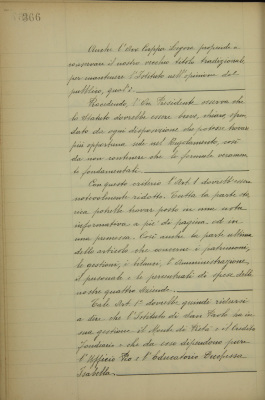 366
Anche l'Avv. Cappa Legora propende a
conservare il nostro vecchio titolo tradizionale,
per mantenere l'Istituto nell'opinione del
pubblico, qual'è.
Riprendendo, il Vice Presidente osserva che
lo Statuto dovrebbe essere breve, chiaro, spo-
gliato da ogni disposizione che potesse trovare
più opportuna sede nel Regolamento, così
da non contenere che le formule veramen-
te fondamentali.
Con questo criterio l'Art. 1 dovrebb'essere
notevolmente ridotto. Tutta la parte sto-
rica potrebbe trovar posto in una nota
informativa a piè di pagina od in
una premessa. Così anche la parte ultima
dello articolo che concerne i patrimoni,
le gestioni, i bilanci, l'Amministrazione,
il personale e le percentuali di spesa delle
nostre quattro Aziende.
Tale Art. 1° dovrebbe quindi ridursi
a dire che l'Istituto di San Paolo ha in
sua gestione il Monte di Pietà e il Credito
Fondiario e che da esso dipendono pure
l'Ufficio Pio e l'Educatorio Duchessa
Isabella.